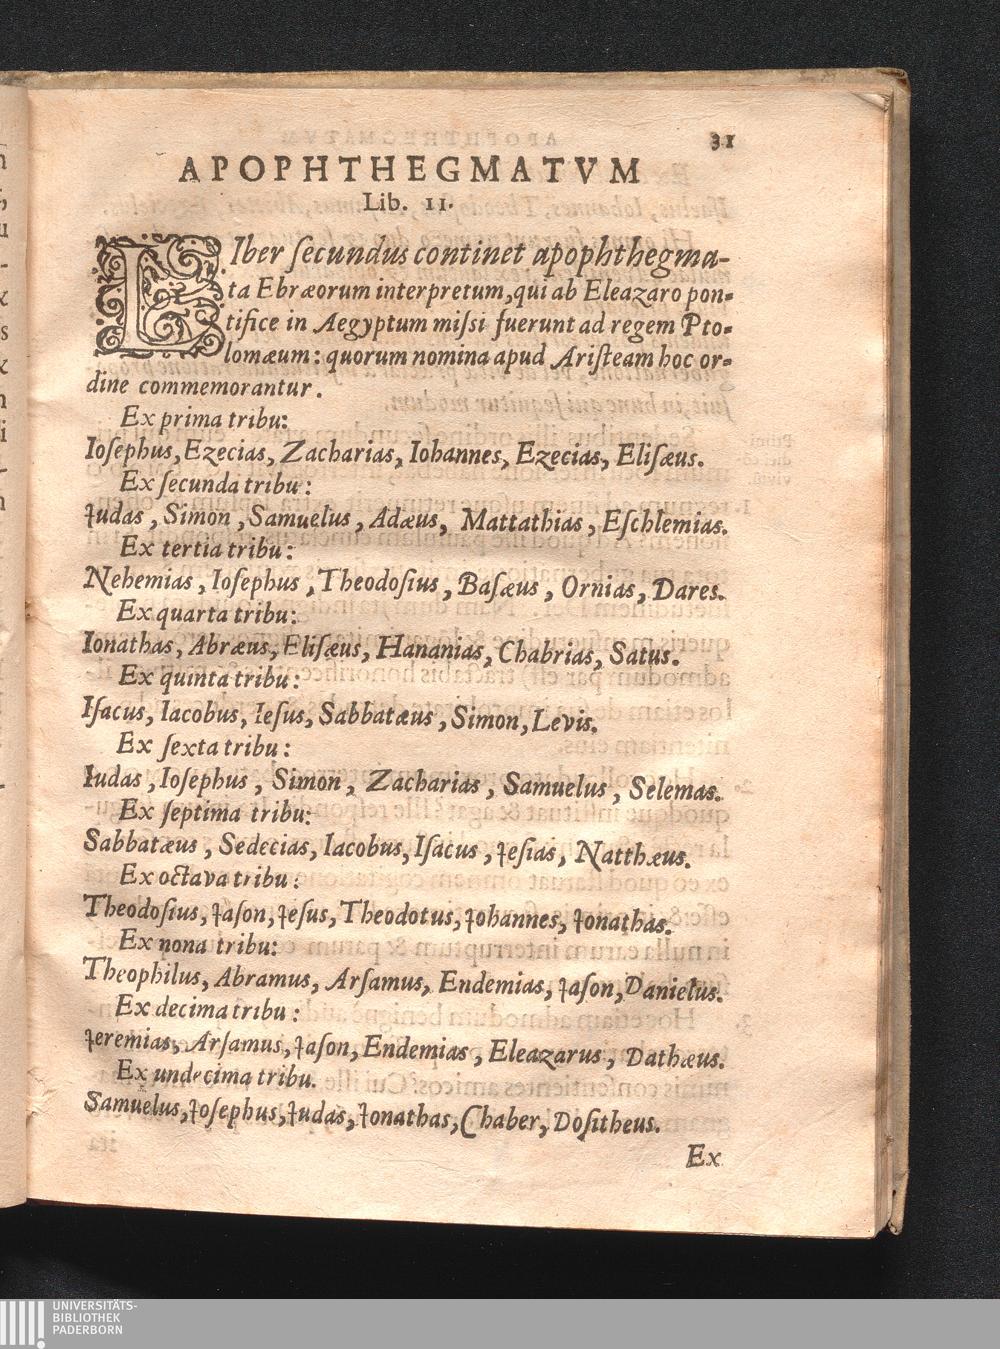 31
APOPHTHEGMATVM
Lib. II.
LIber ſecundus continet apophthegma-
ta Ebræorum interpretum, qui ab Eleazaro pon-
tifice in Aegyptum miſsi fuerunt ad regem Pto-
lomæum: quorum nomina apud Ariſteam hoc or-
dine commemorantur.
Ex prima tribu:
Ioſephus, Ezecias, Zacharias, Iohannes, Ezecias, Eliſæus.
Ex ſecunda tribu:
Judas, Simon, Samuelus, Adæus, Mattathias, Eſchlemias.
Ex tertia tribu:
Nehemias, Ioſephus, Theodoſius, Baſæus, Ornias, Dares.
Ex quarta tribu:
Ionathas, Abræus, Eliſæus, Hananias, Chabrias, Satus.
Ex quinta tribu:
Iſacus, Iacobus, Ieſus, Sabbatæus, Simon, Levis.
Ex ſexta tribu:
Iudas, Ioſephus, Simon, Zacharias, Samuelus, Selemas.
Ex ſeptima tribu:
Sabbatæus, Sedecias, Iacobus, Iſacus, Jeſias, Natthæus.
Ex octava tribu:
Theodoſius, Jaſon, Jeſus, Theodotus, Johannes, Jonathas.
Ex nona tribu:
Theophilus, Abramus, Arſamus, Endemias, Jaſon, Danielus.
Ex decima tribu:
Jeremias, Arſamus, Jaſon, Endemias, Eleazarus, Dathæus.
Ex undecima tribu.
Samuelus, Joſephus, Judas, Jonathas, Chaber, Doſitheus.
Ex
UNIVERSITÄTS-
BIBLIOTHEK
PADERBORN